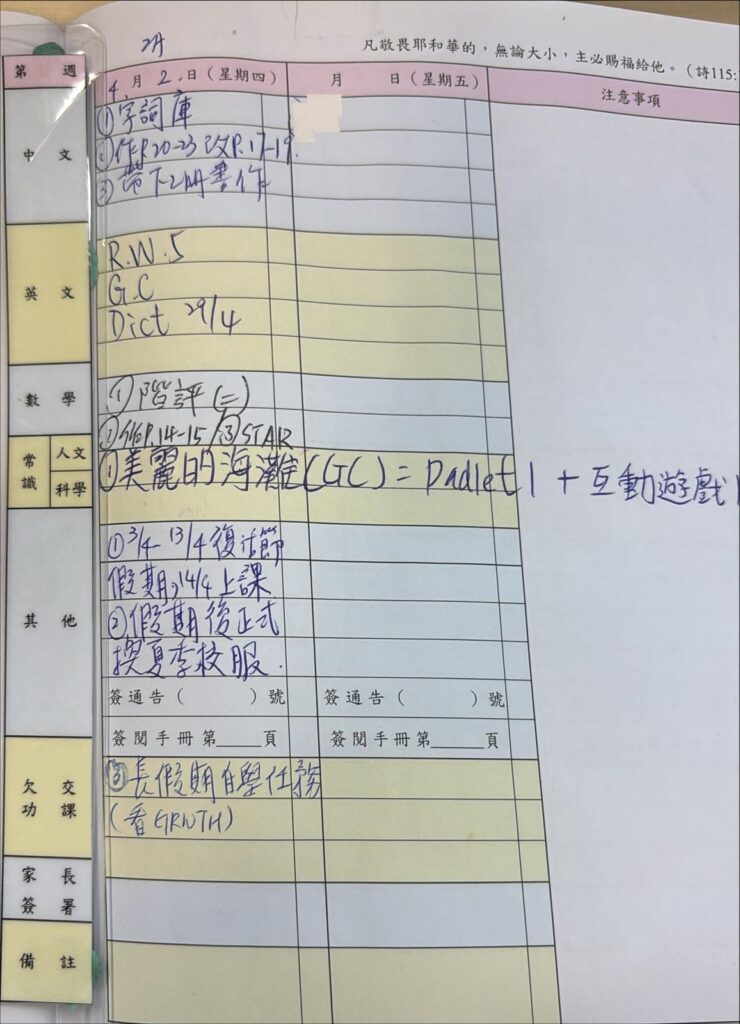 2A
凡敬畏耶和華的，無論大小，主必賜福給他。（詩115:
第 週
4月2日（星期四）
月 日（星期五）
注意事項
中 文
①字詞庫
②作P.20-23 改P.17-19.
③帶下2冊書作
英 文
R.W.5
G.C
Dict 29/4
數 學
①階評(二)
②作P.14-15/③STAR
常識
人文
科學
①美麗的海灘(GC) = Padlet 1 + 互動遊戲1
其 他
①3/4-13/4復活節
假期，14/4上課
②假期後正式
換夏季校服.
簽通告（ ）號
簽通告（ ）號
簽閱手冊第____頁
簽閱手冊第____頁
欠 交
功 課
③長假期自學任務
(看GRWTH)
家 長
簽 署
備 註